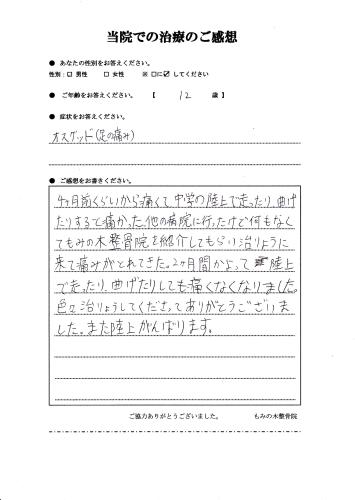 当院での治療のご感想
● あなたの性別をお答えください。
性別：□ 男性 □ 女性 ※ □に☑してください
● ご年齢をお答えください。 【 12 歳 】
● 症状をお答えください。
オスグッド(足の痛み)
● ご感想をお書きください。
4ヶ月前くらいから痛くて、中学の陸上で走ったり、曲げ
たりすると痛かった。他の病院に行ったけど何もなく
てもみの木整骨院を紹介してもらい治りょうに
来て痛みがとれてきた。2ヶ月間かよって 陸上
で走ったり、曲げたりしても痛くなくなりました。
色々治りょうしてくださってありがとうございま
した。また陸上がんばります。
ご協力ありがとうございました。 もみの木整骨院